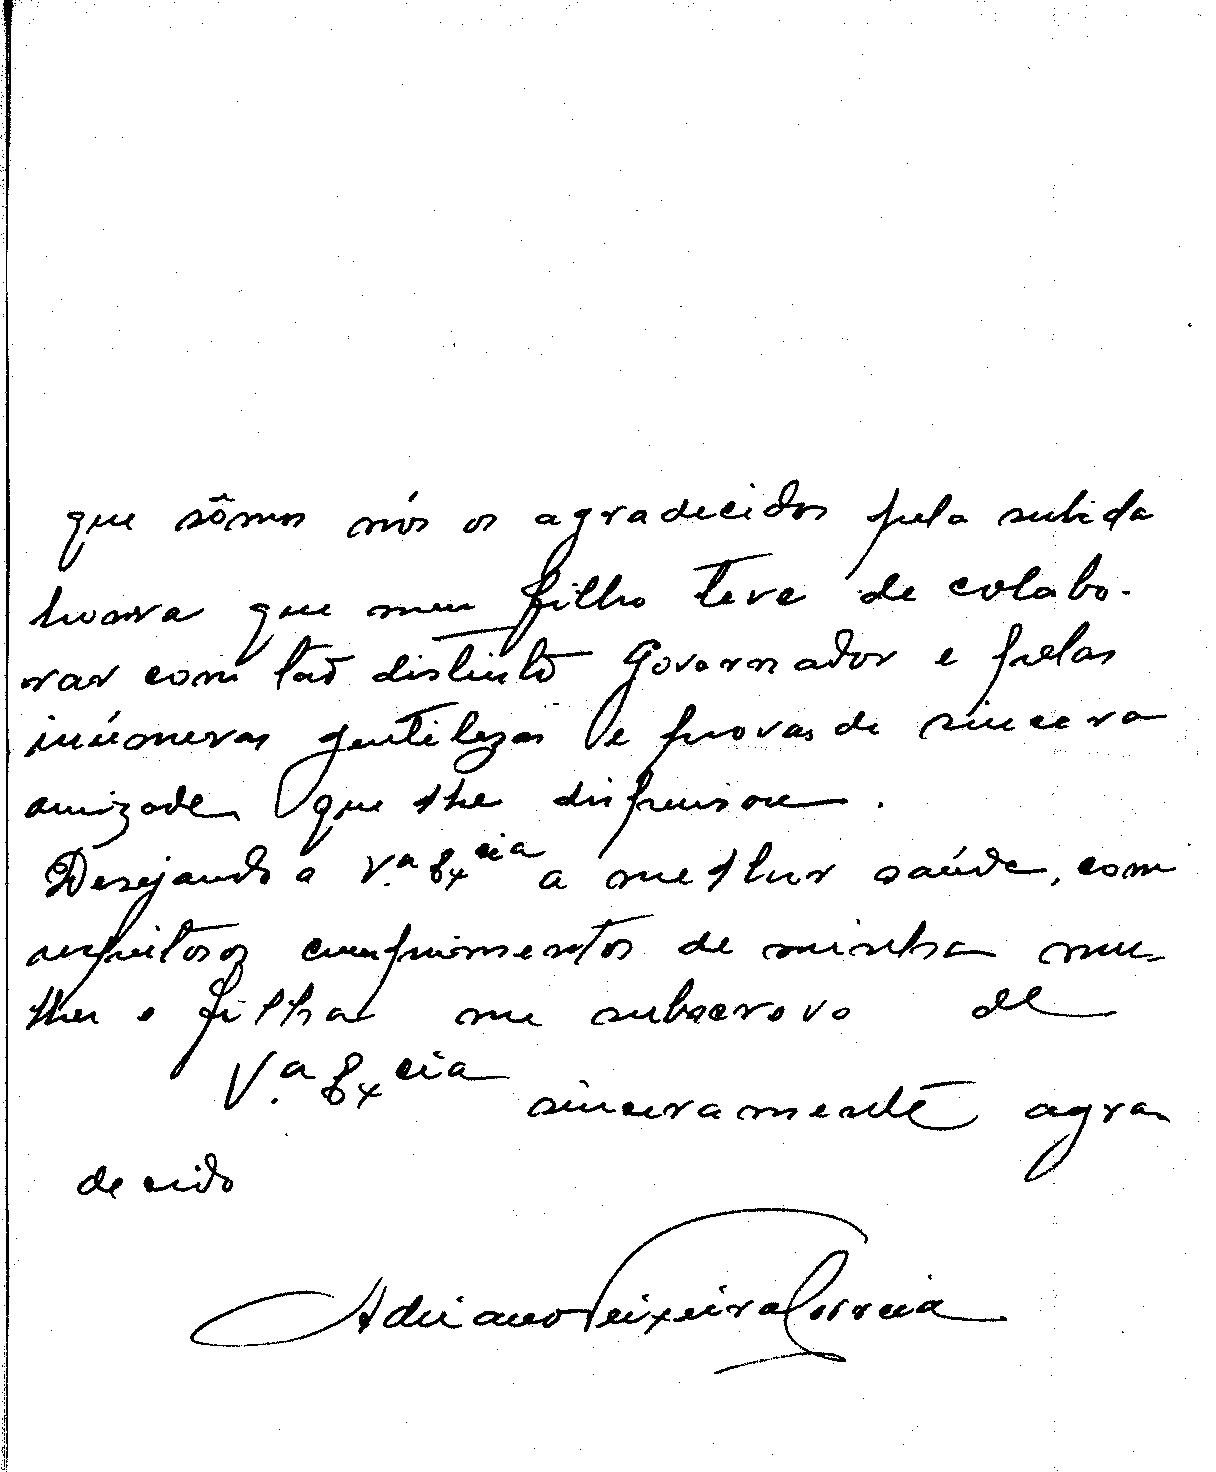 que sômos nós os agradecidos pela subida
honra que meu filho teve de colabo-
rar com tão distinto Governador e pelas
inúmeras gentilezas e provas de sincera
amizade que lhe dispensou.
Desejando a V.ª Exᶜⁱᵃ a melhor saúde, com
respeitosos cumprimentos de minha mu-
lher e filha me subscrevo de
V.ª Exᶜⁱᵃ
sinceramente agra
decido
Adriano Teixeira Correia